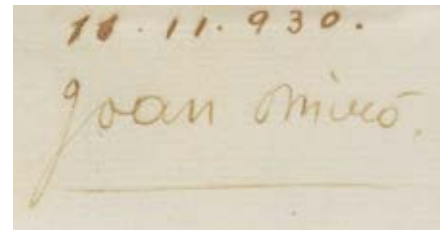 11.11.930.
Joan Miró.